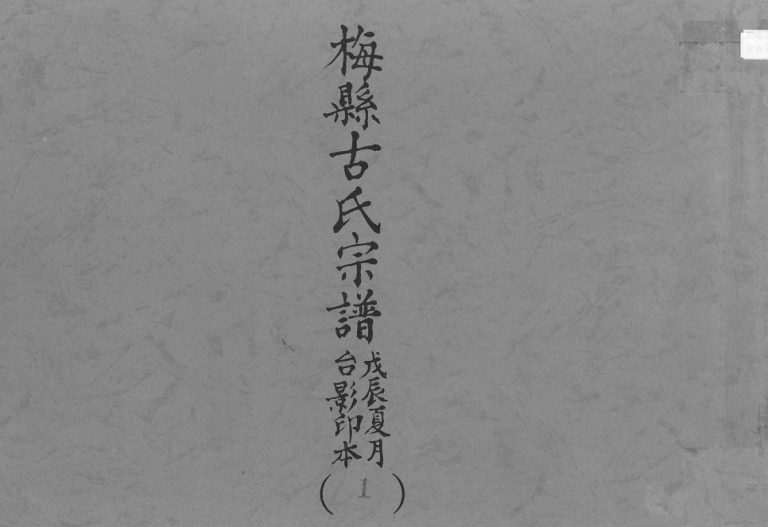 梅縣古氏宗譜
戊辰夏月
台影印本
(1)